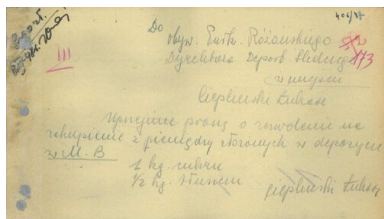 406/48
Do
Obyw. Pułk. Różańskiego
III
Dyrektora Depart. Śledczego
w miejscu
Ciepliński Łukasz
Uprzejmie proszę o zezwolenie na
zakupienie z pieniędzy złożonych w depozycie
w M.B
1 kg. cukru
1/2 kg. tłuszczu
Ciepliński Łukasz